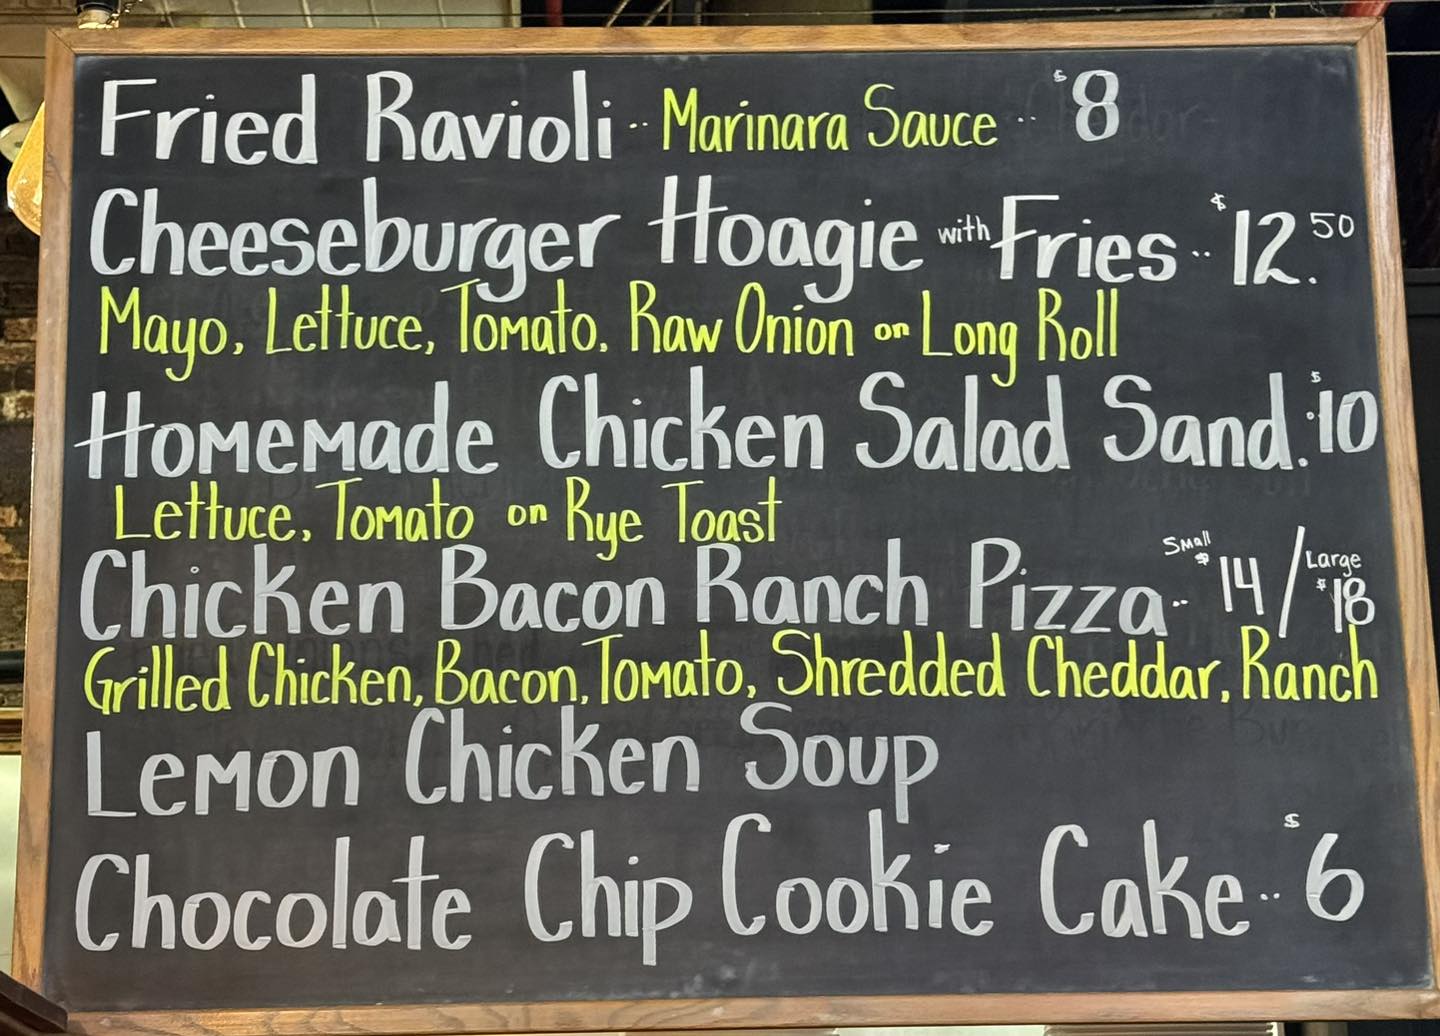 Fried Ravioli -- Marinara Sauce -- $8
Cheeseburger Hoagie with Fries -- $12.50
Mayo, Lettuce, Tomato, Raw Onion on Long Roll
Homemade Chicken Salad Sand. -- $10
Lettuce, Tomato on Rye Toast
Chicken Bacon Ranch Pizza -- Small $14 / Large $18
Grilled Chicken, Bacon, Tomato, Shredded Cheddar, Ranch
Lemon Chicken Soup
Chocolate Chip Cookie Cake -- $6